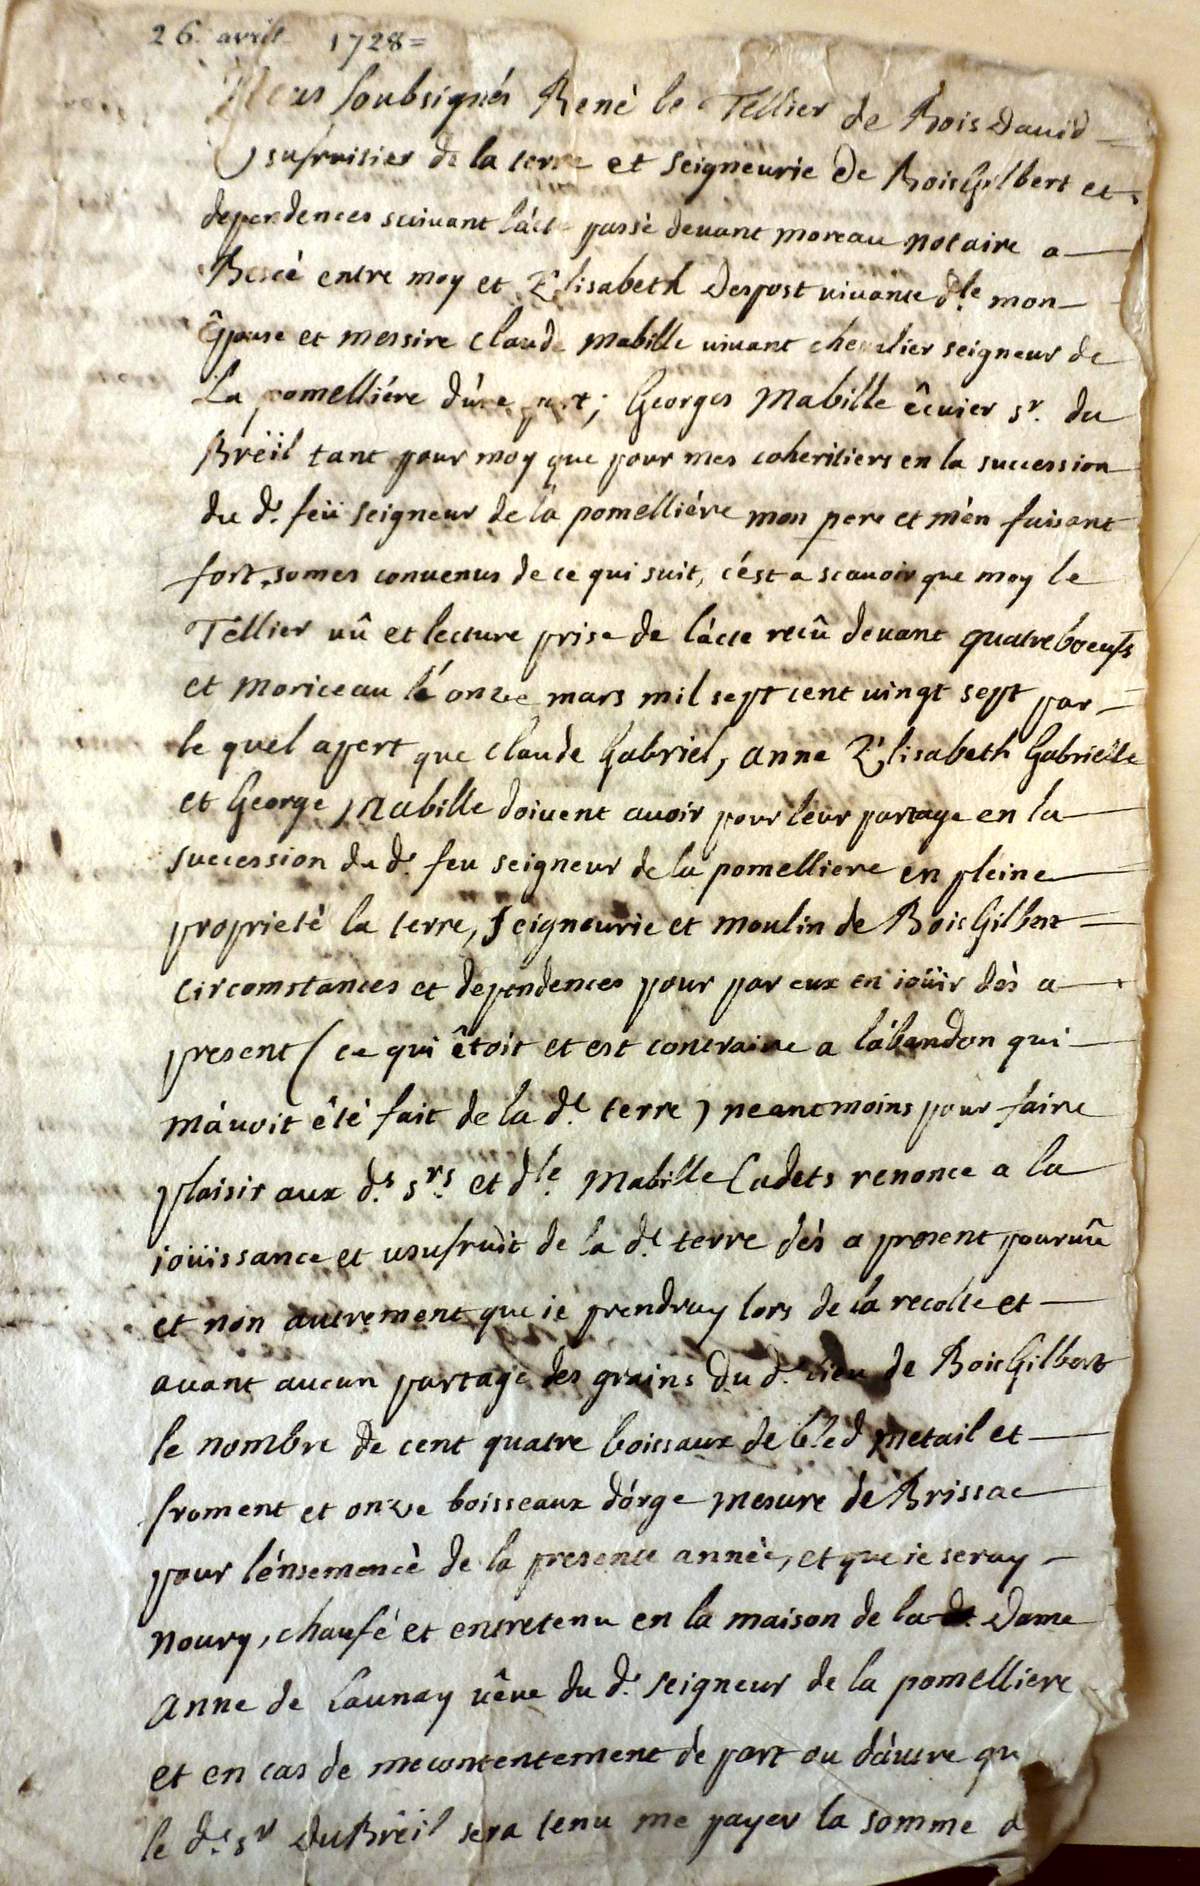 26. avril 1728=
Nous soubsignés René le Tellier de Bois David
usufruitier de la terre et seigneurie de BoisGilbert et
dependences suivant l'acte passé devant moreau notaire a
Bescé entre moy et Elisabeth Despost vivante dle. mon
êpouse et messire Claude Mabille vivant chevalier seigneur de
La pomelliére d'une part; Georges Mabille êcuier sr. du
Breïil tant pour moy que pour mes coheritiers en la succession
du d. feü seigneur de la pomelliére mon pere et m'en faisant
fort, somes convenus de ce qui suit, c'est a scavoir que moy le
Tellier vû et lecture prise de l'acte recû devant quatreboeufs
et moriceau le onze mars mil sept cent vingt sept par
le quel apert que Claude Gabriel, anne Elisabeth Gabrielle
et George Mabille doivent avoir pour leur partage en la
succession du d. feu seigneur de la pomelliere en pleine
proprieté la terre, seigneurie et moulin de BoisGilbert
circomstances et dependences pour par eux en ioüir dès a
present (ce qui êtoit et est contraire a l'abandon qui
m'avoit êté fait de la de. terre) neantmoins pour faire
plaisir aux ds. srs. et dle. Mabille Cadets renonce a la
ioüissance et usufruit de la de. terre dés a present pourvû
et non autrement que ie prendray lors de la recolte et
avant aucun partage des grains du d. lieu de BoisGilbert
le nombre de cent quatre boissaux de bled metail et
froment et onze boisseaux d'orge mesure de Brissac
pour l'énsemencé de la presente année, et que ie seray
noury, chaufé et entretenu en la maison de la Dame
anne de Launay vêve du d. seigneur de la pomelliere
et en cas de mecontentement de part ou d'autre qu
le d. sr DuBreïil sera tenu me payer la somme d